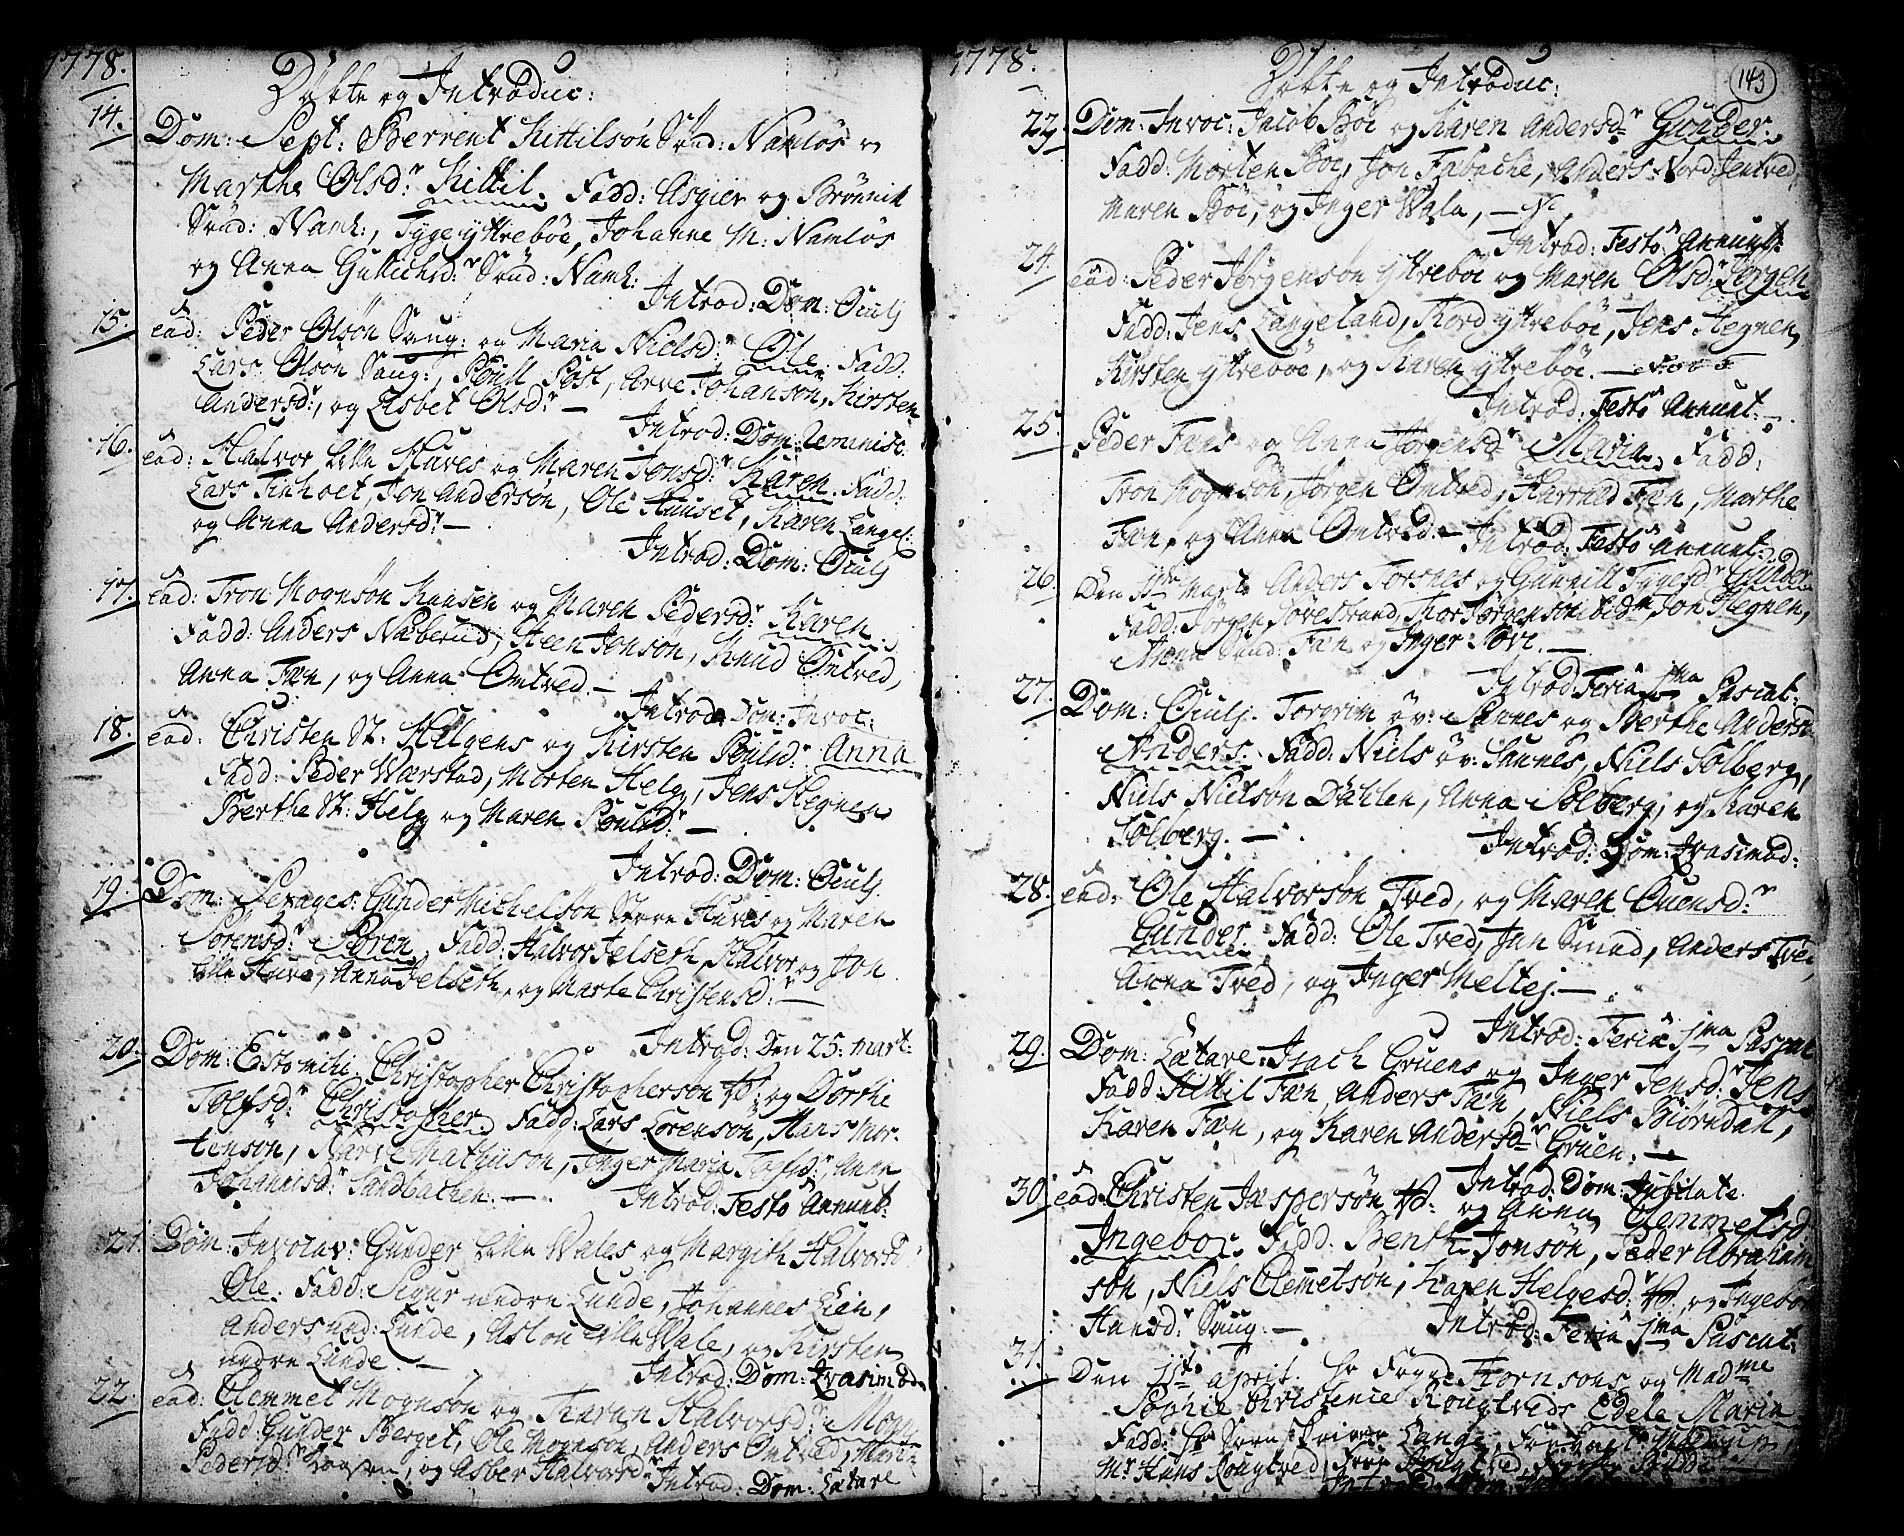 1778.
Döbte og Introduc:
14. Dom: Sept: Berrent Kittilsön Srud: Namlös og
Marthe Olsd:r Kittil. Fadd: Asgier og Brönnik
Srud: Naml:, Tyge ÿttreböe, Johanne M: Namlös
og Anna Gullichsd:r Srud: Naml:
Introd: Dom: Oculj
15. ead: Peder Olsön Saug: og Maria Nielsd:r Ole. Fadd:
Lars Olsön Saug:, Poull Post, Arve Johansön, Kirsten
Andersd:r, og Lisbet Olsd:r —
Introd: Dom: Reminisc:
16. ead: Halvor Lille Hüves og Maren Jonsd:r Karen. Fadd:
Lars Tinholt, Jon Andersön, Ole Hunset, Karen Langel:
og Anna Andersd:r —
Introd: Dom: Oculj
17. ead: Tron Mognsön Kaasen og Maren Pedersd:r Karen.
Fadd: Anders Naberud, Steen Jonsön, Knud Omtved,
Anna Fæn, og Anna Omtved. —
Introd: Dom: Invoc:
18. ead: Christen St: Helgens og Kirsten Poulsd:r Anna
Fadd: Peder Wærstad, Morten Helg:, Jens Hegnen
Berthe St: Helg og Maren Poulsd:r —
Introd: Dom: Oculj.
19. Dom: Sexages: Gunder Michelsön Store Huves og Maren
Sörensd:r Sören. Fadd: Halvor Jelseth, Halvor og Jon
Lille Huve, Anna Jelseth, og Marte Christensd:r —
Introd: Den 25. mart:
20. Dom: Estomihi: Christopher Christophersön og Dorthe
Tolfsd:r Christopher. Fadd: Lars Lorensön, Hans Mor-
tensön, Narve Mathiisön, Inger Maria Tolfsd:r Anna
Johannisd:r Sandbachen. —
Introd: Festo Annunt:
21. Dom: Invocav: Gunder Lille Wales og Margith Halvorsd:r
Ole. Fadd: Sigur nedre Lunde, Johannes Lien,
Anders ned: Lunde, Aslou Lille Wale, og Kirsten
nedre Lunde. —
Introd: Dom: Qvasimod:
22. ead: Clemmet Mognsön og Karen Halvorsd:r Mogn
Fadd: Gunder Berget, Ole Mognsön, Anders Omtved, Marte
Pedersd:r Kaasen, og Asber Halvorsd:r
Introd: Dom: Lætare
1778.
143
Döbte og Introduc:
23. Dom: Invoc: Jacob Böe og Karen Andersd:r Gunder.
Fadd: Morten Böe, Jon Tabache, Anders Nord: Jentved,
Maren Böe, og Inger Wala, —
Introd: Festo Annunt:
24. ead: Peder Jörgensön ÿttreböe og Maren Olsd:r Jörgen
Fadd: Jens Langeland, Tord ÿttreböe, Jens Hegnen,
Kirsten ÿttreböe, og Karen ÿttreböe. —
Introd: Festo Annunt: —
25. Peder Fæns og Anna Jörgensd:r Maria. Fadd:
Tron Mognsön, Jörgen Omtved, Harrald Fæn, Marthe
Fæn, og Anna Omtved. — Introd: Festo Annunt:
26. Den 11te Marti Anders Torsnes og Gunnill Tygesd:r Gunder
Fadd: Jörgen Jovestrand, Thor Jörgensön ibid:m Jon Hegnen,
Anna Fæn og Inger Töve. —
Introd: Feria 1ma Pascat:
27. Dom: Oculj. Torgrim öv: Sannes og Berthe Andersd:
Anders. Fadd: Niels öv: Sannes, Niels Solberg,
Niels Nielsön Dahlen, Anna Solberg, og Karen
Solberg. —
Introd: Dom: Qvasimod:
28. ead: Ole Halvorsön Tved, og Maren Ouensd:r
Gunder. Fadd: Ole Tved, Jan Smed, Anders Tved,
Anna Tved, og Inger Meltej. —
Introd: Feria 1ma Pascat
29. Dom: Lætare: Isach Gruens og Inger Jensd:r Jens
Fadd: Kittil Fæn, Anders Fæn, Niels Biörndal,
Karen Fæn, og Karen Andersd:r Gruen. —
Introd: Dom: Jubilate.
30. ead: Christen Jaspersön og Anna Clemmetsd:
Ingebor. Fadd: Bent Jonsön, Peder Abraham
sön, Niels Clemetsön, Karen Helgesd:r og Ingebor
Hansd:r Saug. —
Introd: Feria 1ma Pascat:
31. Den 11te april. Hr Foged Tornsons og Madme
Sophie Christenie Rougtveds Edele Maria
Fadd: Hr Soren Skriver Lange,
Mr Hans Rougtved,